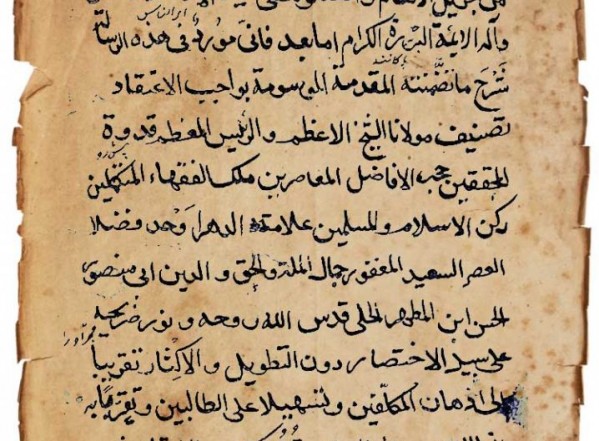 وآله الائمة البررة الكرام اما بعد فاني مورد في هذه الرسالة
شرح ما تضمنته المقدمة الموسومة بواجب الاعتقاد
تصنيف مولانا الشيخ الاعظم والرئيس المعظم قدوة
المحققين الافاضل المعاصرين ملك الفقهاء المتكلمين
ركن الاسلام والمسلمين علامة الدهر اوحد فضلا
العصر السعيد المغفور جمال الملة والحق والدين ابى منصور
الحسن ابن المطهر الحلى قدس الله روحه ونور ضريحه
على سبيل الاختصار دون التطويل والاكثار تقريبا
الى اذهان المكلفين وتسهيلا على الطالبين وتقربا به